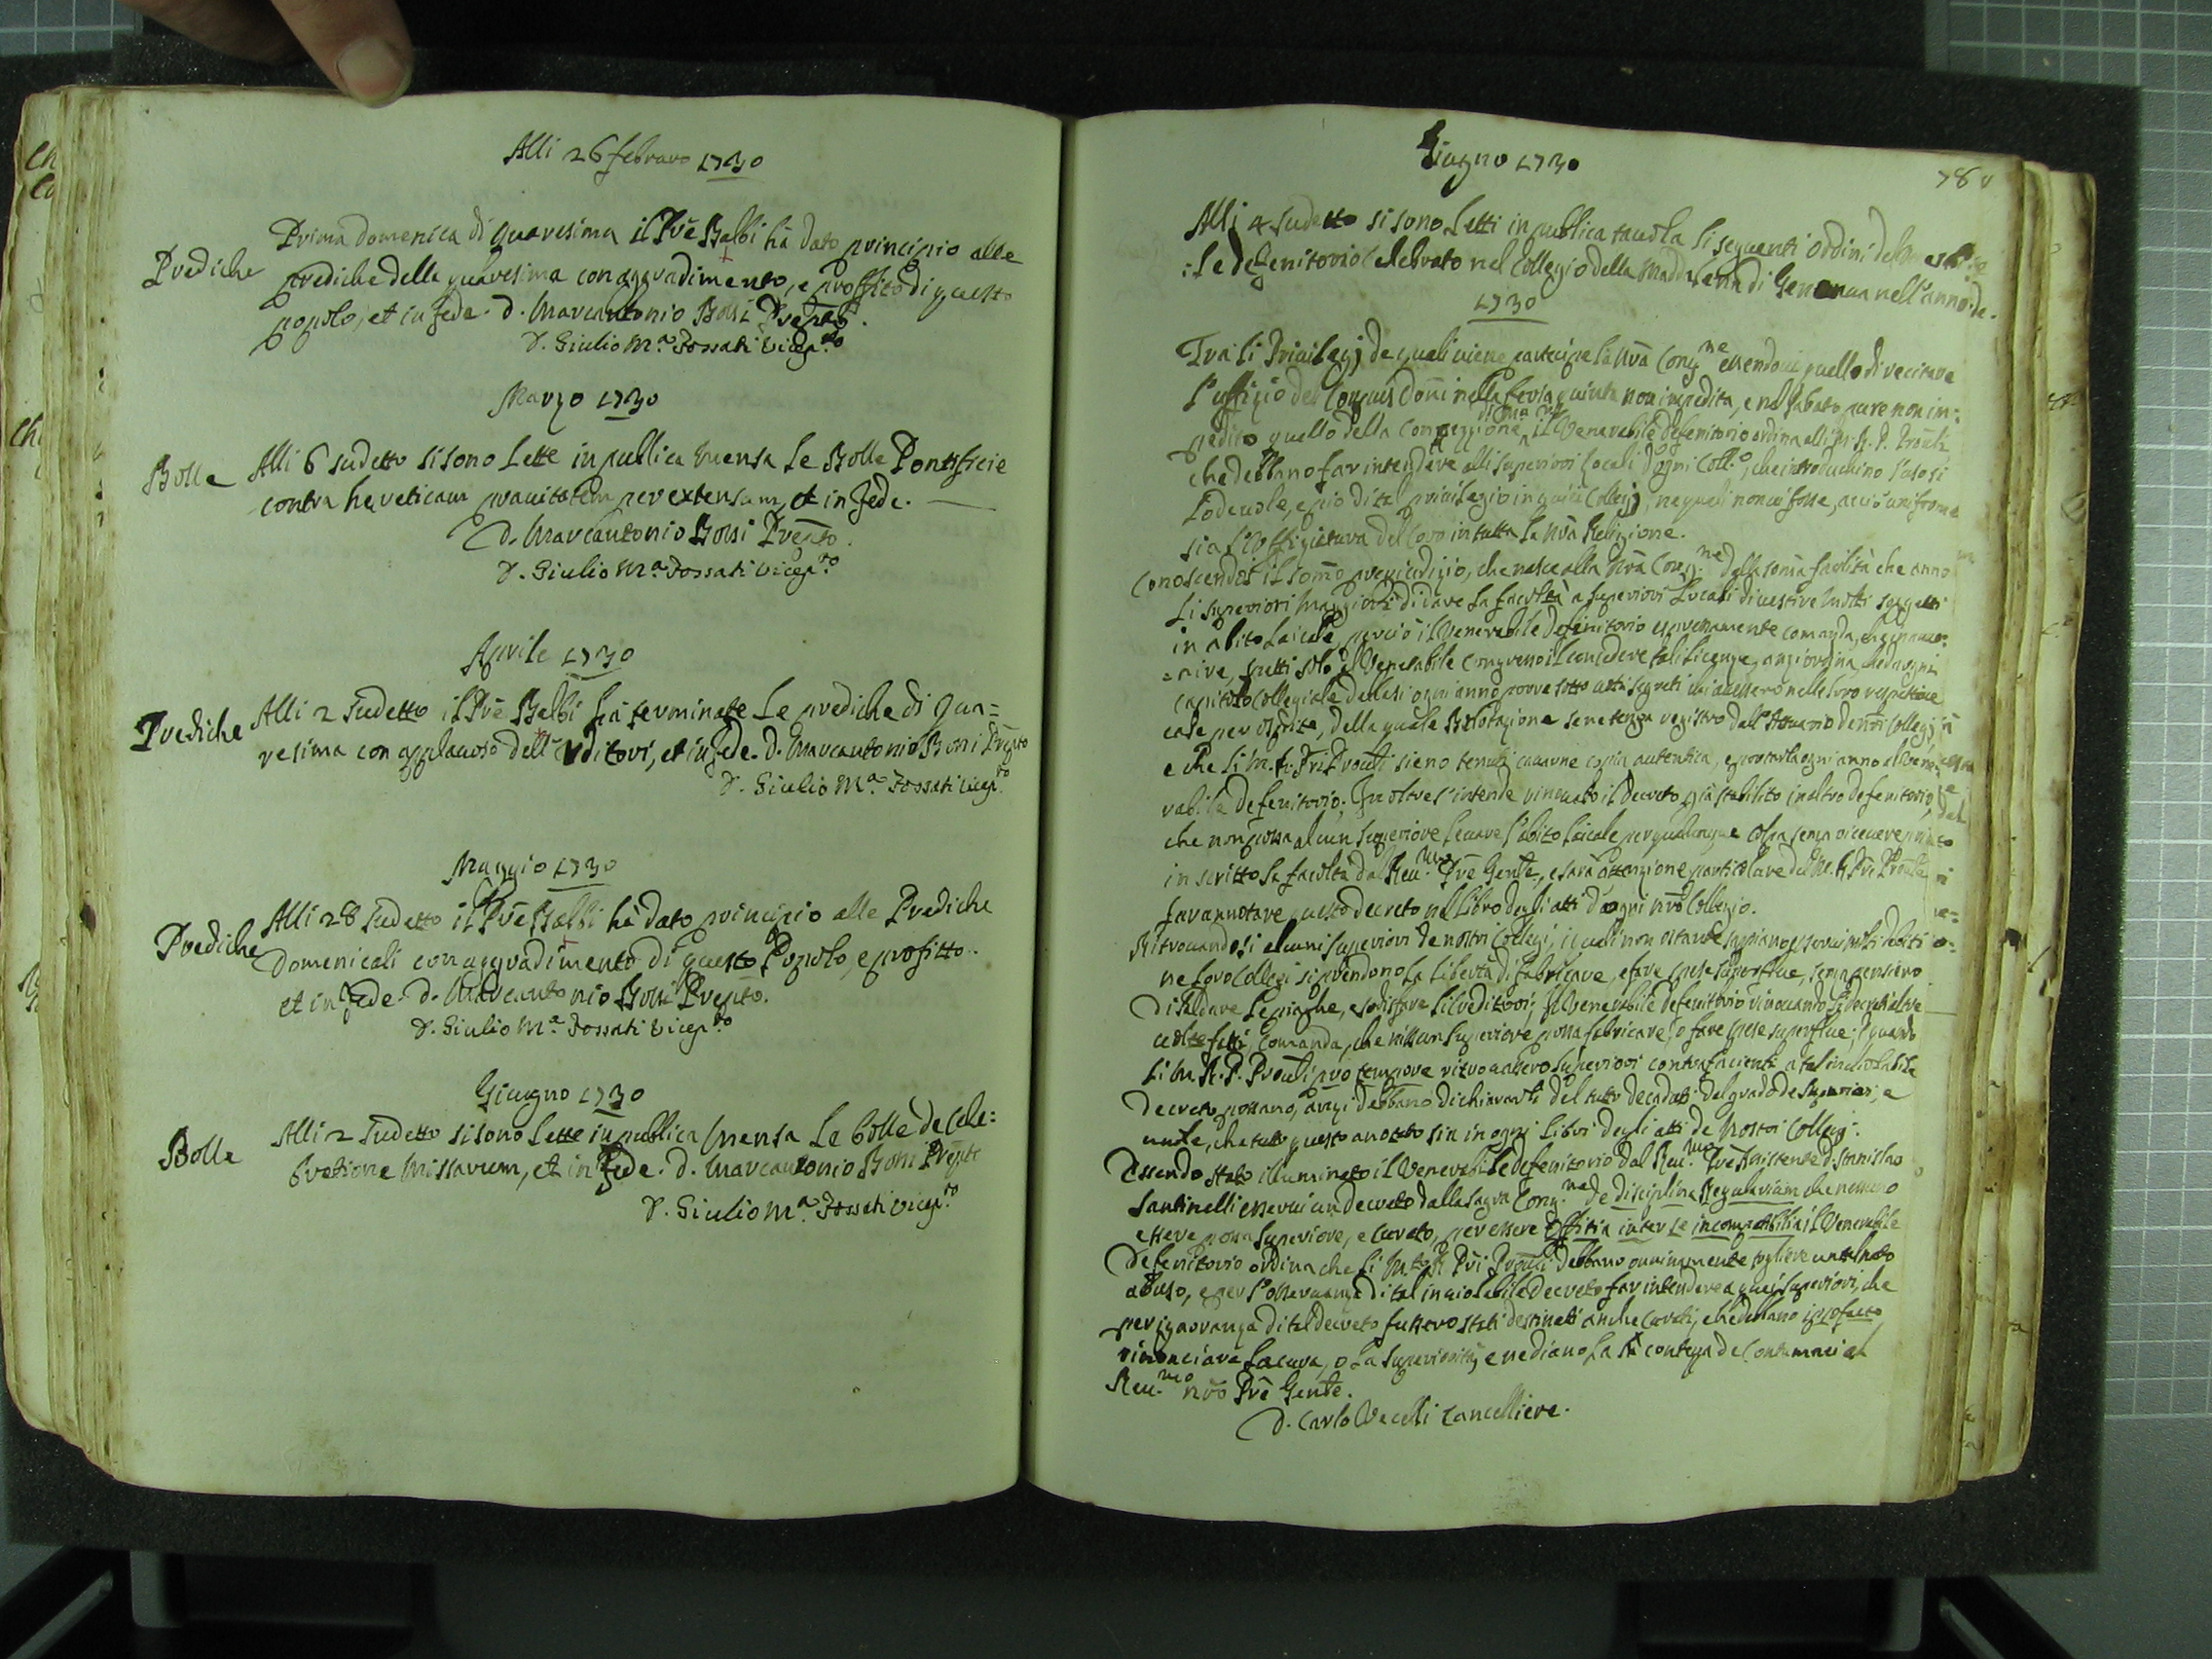 Alli 26 febraro 1730
Prediche
Prima domenica di quaresima il Prē Balbi hà dato principio alle
prediche della quaresima con aggradimento, e proffito di questo
popolo, et in fede. D. Marcantonio Bossi Prepto.
D. Giulio Mª. Fossati vicep.to
Marzo 1730
Bolle
Alli 6 sudetto si sono Lette in publica Mensa Le Bolle Pontificie
contra hereticam pravitatem per extensum, et in fede.
D. Marcantonio Bossi Prepto.
D. Giulio Mª. Fossati vicep.to
Aprile 1730
Prediche
Alli 2 Sudetto il Prē Balbi hà terminate Le prediche di Qua=
resima con applauso dell' Vditori, et in fede. D. Marcantonio Bossi Prepto
D. Giulio Mª. Fossati vicep.to
Maggio 1730
Prediche
Alli 28 Sudetto il Prē Balbi hà dato principio alle Prediche
Domenicali con aggradimento di questo Popolo, e profitto.
et in fede. D. Marcantonio Bossi Prepto.
D. Giulio Mª. Fossati vicep.to
Giugno 1730
Bolle
Alli 2 Sudetto si sono Lette in publica Mensa Le bolle de Cele:
bratione Missarum, et in fede. D. Marcantonio Bossi Prepto
D. Giulio Mª. Fossati vicep.to
Giugno 1730
78
Alli 4 Sudetto si sono Letti in publica tauola Li seguenti ordini del
:le defenitorio Celebrato nel Collegio della Madalena di Genoua nell'anno
1730
Tra li Priuilegj de quali uiene partecipe la nrā Cong.ne essendoui quello di recitare
l'uffizio del Corpus Dom̄i nella feria quinta non impedita, e nel sabato pure non im:
pedito quello della Concezzione il Venerabile Defenitorio ordina alli M. R. P. Prouli
che debbano far intendere alli superiori Locali d'ogni Coll.º, che introduchino l'uso sì
Lodeuole, e pio di tal priuilegio in quei Collegj, ne quali non ui fosse, acciò uniforme
sia l'Offiziatura del Coro in tutta la nrā Religione.
Conoscendosi il som̄o pregiudizio, che nasce alla nrā Cong.ne dalla som̄a facilità che anno
Li superiori Maggiori di dare La facoltà a superiori Locali di uestire Molti soggetti
in abito Laicale, perciò il Venerabile Defenitorio espressamente comanda, che
spetti solo al Venerabile Congresso il concedere tali licenze, anzi ordina, che da ogni
capitolo Collegiale debbasi ogni anno sotto uoti segreti
case per ospite, della quale se ne tenga registro dall'Attuario de nrī Collegj
e che li M. R. Pri Prouli sieno tenuti cauarne copia autentica, e portarla ogni anno al Vene:
rabile defenitorio. Inoltre s'intende rinouato il decreto già stabilito in altro defenitorio
che non possa alcun superiore leuare l'abito laicale per qualunque colpa senza riceuere
in scritto la facoltà dal Reu.mo Prē Gente, e sarà attenzione particolare del M. R. Pre Proule
far annotare questo decreto nel Libro degli atti d'ogni nrō Collegio.
Ritrouandosi alcuni superiori de nostri Collegj, i quali non ostante sappiano esserui molti debiti
ne loro Collegi si prendono La Libertà di fabricare, e fare spese superflue, senza pensiero
di saldare le piaghe, e sodisfare li creditori; il Venerabile defenitorio rinouando li decreti altre
uolte fatti, Comanda, che nissun superiore possa fabricare, o fare spese superflue; e quando
li M. R. P. Prouli pro tempore ritrouassero superiori contrafacienti a tal inuiolabile
decreto possano, anzi debbano dichiararli del tutto decaduti dal grado de superiori, e
uuole, che tutto questo anotato sia in ogni Libri degli atti de Nostri Collegj.
Essendo stato illuminato il Venerabile defenitorio dal Reu.mo Prē Assistente D. Stanislao
Santinelli esserui un decreto dalla Sagra Cong.ne de disciplina Regularium che nessuno
essere possa superiore, e curato, per essere Offitia inter se incompatibilia, il Venerabile
Defenitorio ordina che li M.to R. Pri Prouli debbano onninamente togliere un tal nato
abuso, e per l'osseruanza di tal inuiolabile decreto far intendere a quei superiori, che
per ignoranza di tal decreto fussero stati destinati anche Curati, che debbano ipso facto
rinonciare la cura, o la superiorità, e ne diano la contezza de Contumaci al
Reu.mo nrō Prē Gente.
D. Carlo Vecelli Cancelliere.